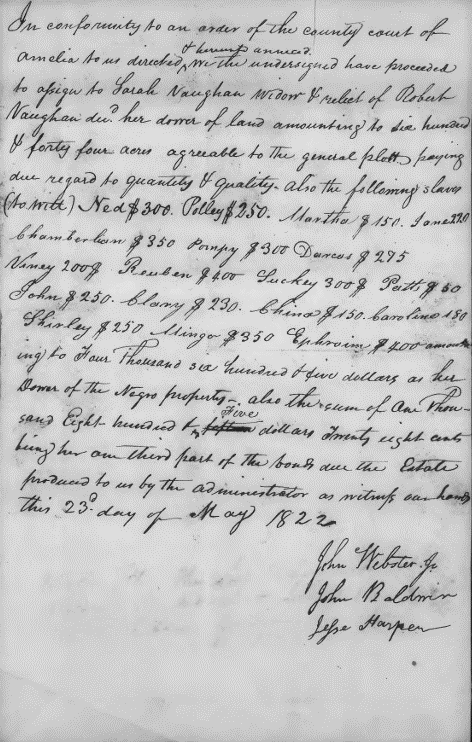 In conformity to an order of the county court of
& hereunto annexed.
Amelia to us directed, We the undersigned have proceeded
to assign to Sarah Vaughan widow & relict of Robert
Vaughan dec.d her dower of land amounting to six hundred
& forty four acres agreeable to the general platt, paying
due regard to quantity & quality - also the following slaves
(to wit) Ned $300. Polley $250. Martha $150. Jane 220
Chamberlain $350 Pompy $300 Darcas $275
Viney 200$ Reuben $400 Luckey 300$ Patt $50
John $250. Clary $230. China $150. Caroline 150
Shirley $250 Mingo $350 Ephraim $400 amount
ing to Four Thousand six hundred & five dollars as her
Dower of the Negro property -. also the sum of One Thou-
Five
sand Eight hundred & fifteen dollars Twenty eight cents
being her one third part of the bonds due the Estate
produced to us by the administrator as witness our hands
this 23d day of May 1822
John Webster Jr
John Baldwin
Jesse Harper